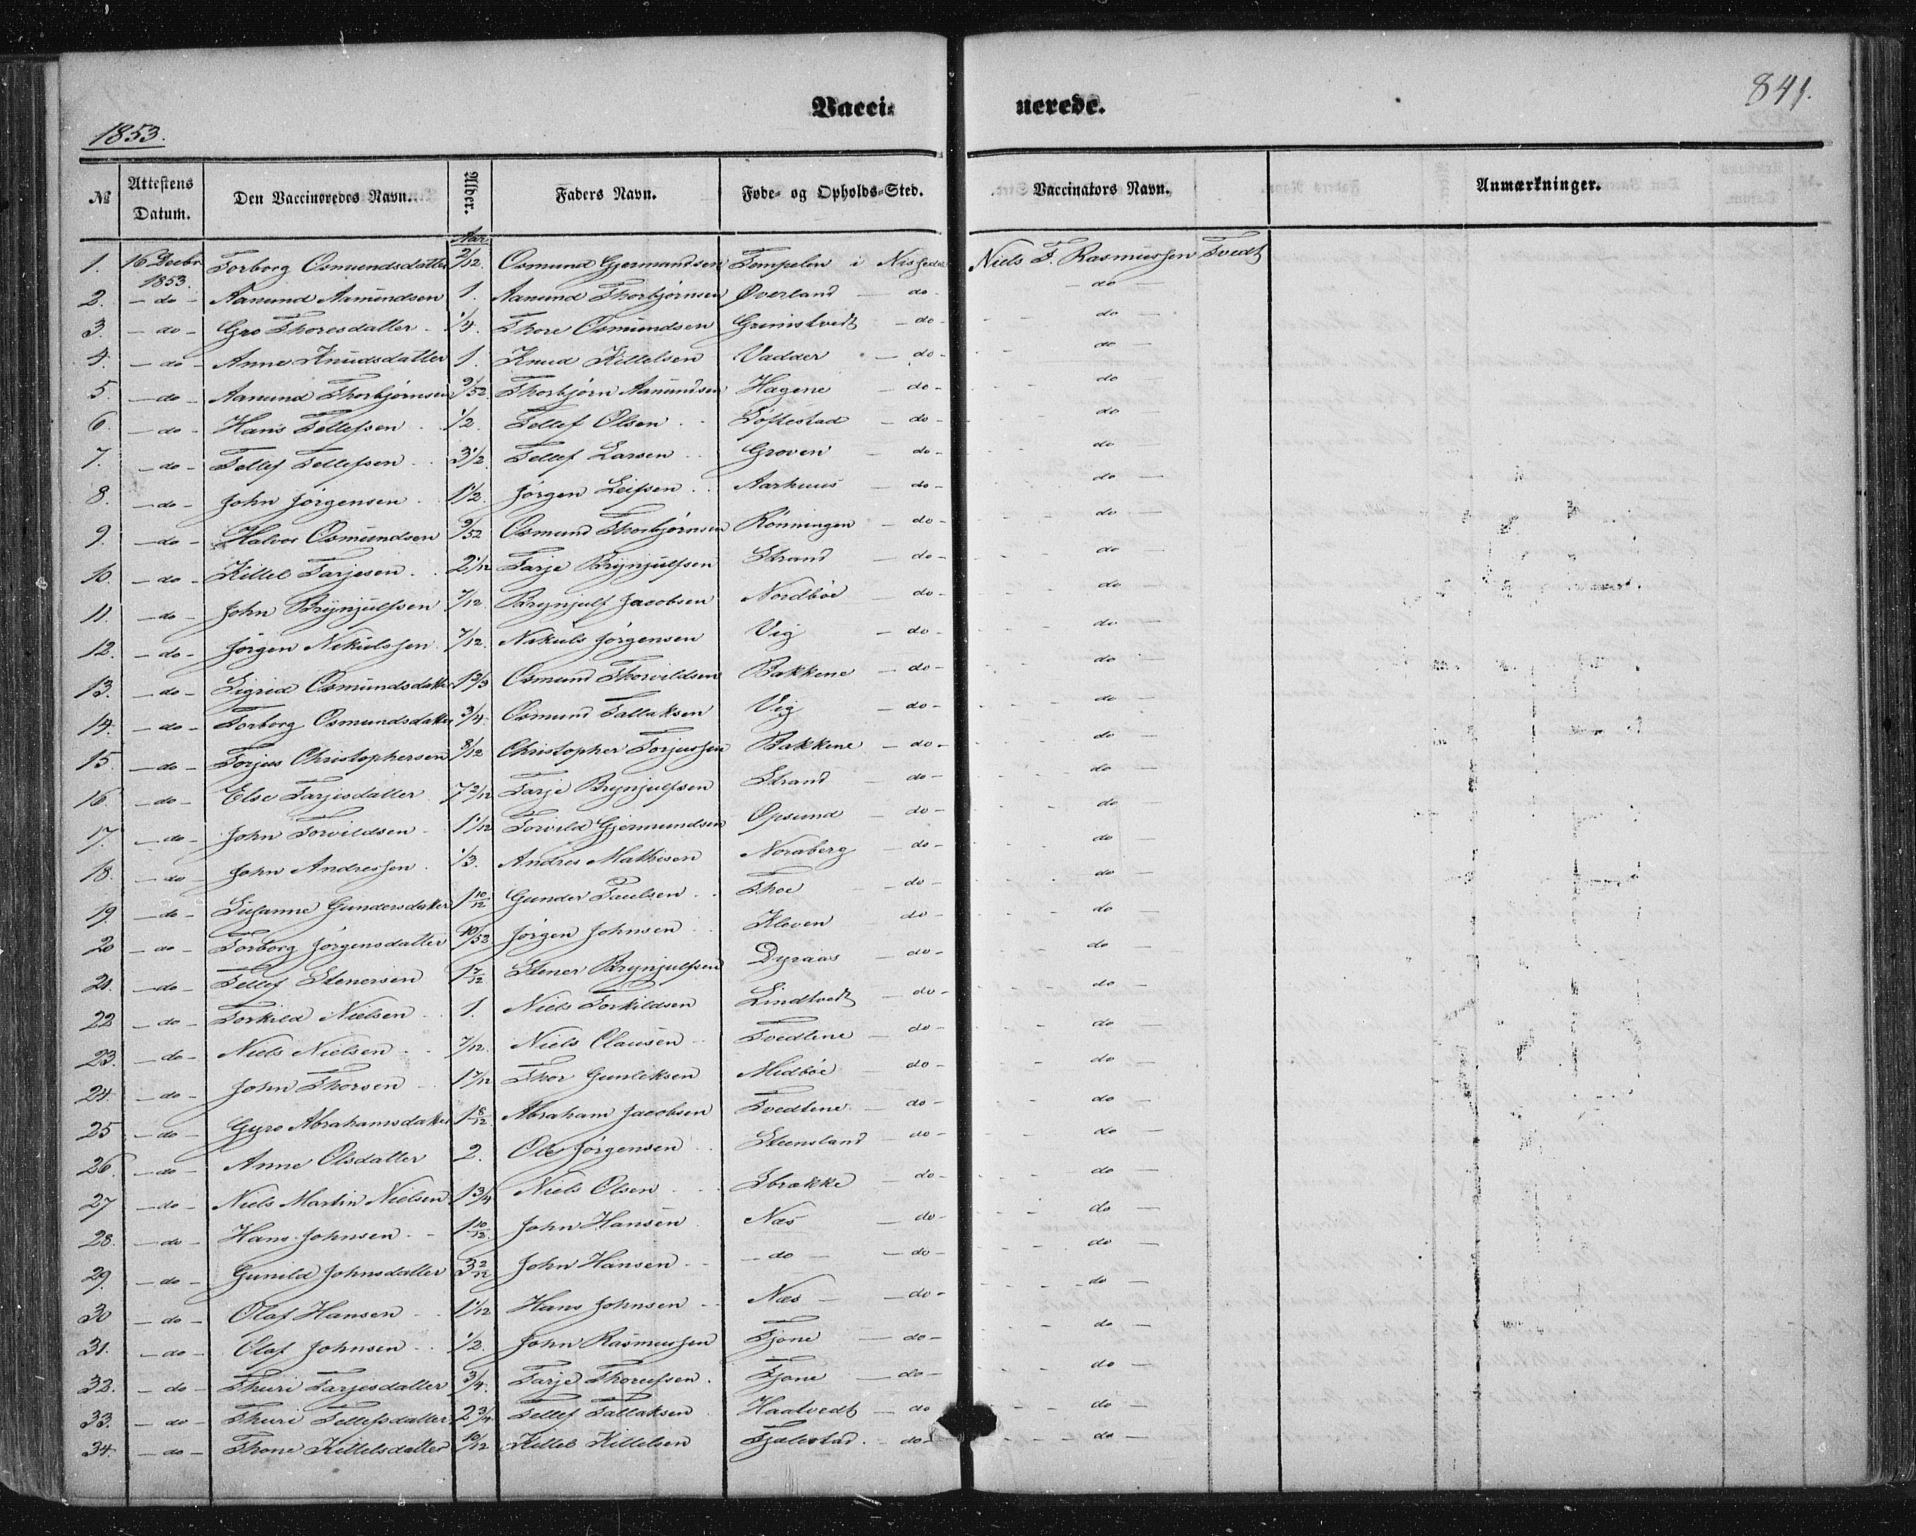 Vacci- nerede.
841.
1853.
№ Attestens Datum. Den Vaccineredes Navn. Alder. Faders Navn. Føde- og Opholds-Sted. Vaccinators Navn. Anmærkninger.
Aar
1. 16 Decbr 1853. Torborg Osmundsdatter 2/12. Osmund Gjermundsen Tempelen i Nissedal Niels T. Rasmussen Tvedt
2. - do - Aanund Aanundsen 1. Aanund Thorbjørnsen Øverland - do - - do -
3. - do - Gro Thoresdatter 1/4. Thore Osmundsen Grimstvedt - do - - do -
4. - do - Anne Knudsdatter 1. Knud Kittelsen Vadder - do - - do -
5. - do - Aanund Thorbjørnsen 9/52. Thorbjørn Aanundsen Hagene - do - - do -
6. - do - Hans Tellefsen 1/2. Tellef Olsen Toftestad - do - - do -
7. - do - Tellef Tellefsen 3 1/2. Tellef Larsen Groven - do - - do -
8. - do - John Jørgensen 1 1/2. Jørgen Leifsen Aarhuus - do - - do -
9. - do - Halvor Osmundsen 9/52 Osmund Thorbjørnsen Rönningen - do - - do -
10. - do - Kittel Tarjesen 2 1/12 Tarje Brynjulfsen Strand - do - - do -
11. - do - John Brynjulfsen 7/12. Brynjulf Jacobsen Nordbøe - do - - do -
12. - do - Jørgen Nikulssen 7/12. Nikuls Jørgensen Vig - do - - do -
13. - do - Sigrid Osmundsdatter 1 2/3 Osmund Thorvildsen Bakkene - do - - do -
14. - do - Torborg Osmundsdatter 3/4. Osmund Tallaksen Vig - do - - do -
15. - do - Torjus Christophersen 8/12 Christopher Torjussen Bakkene - do - - do -
16 - do - Else Tarjesdatter 7 2/12 Tarje Brynjulfsen Strand - do - - do -
17. - do - John Torvildsen 1 1/12 Torvild Gjermundsen Opsund - do - - do -
18. - do - John Andressen 1/3. Andres Mathisen Noraberg - do - - do -
19. - do - Susanne Gundersdatter 1 10/12 Gunder Paulsen Thoe - do - - do -
20 - do - Torborg Jørgensdatter 10/52 Jørgen Johnsen Kleven do - - do -
21. - do - Tellef Stenersen 1 7/12 Stener Brynjulfsen Dyraas - do - - do -
22 - do - Torkild Nielsen 1. Niels Torkildsen Lindtvedt - do - - do -
23. - do - Niels Nielsen 7/12. Niels Clausen Tvedtene - do - - do -
24. - do - John Thorsen 1 7/12 Thor Gunleksen Midbøe - do - - do -
25 - do - Gyro Abrahamsdatter 1 8/12 Abraham Jacobsen Tvedtene - do - - do -
26. - do - Anne Olsdatter 2. Ole Jørgensen Steensland - do - - do -
27 - do - Niels Martin Nielsen 1 3/4 Niels Olsen Sbrække - do - - do -
28. - do - Hans Johnsen 1 10/12. John Hansen Næs - do - - do -
29. - do - Gunild Johnsdatter 3 2/12 John Hansen - do - - do - - do -
30 - do - Olaf Hansen 1 1/12 Hans Johnsen Næs - do - - do -
31. - do - Olaf Johnsen 1/2. John Rasmussen Fjone - do - - do -
32. - do - Thuri Tarjesdatter 3/4. Tarje Thorufsen Fjone - do - - do -
33. - do - Thuri Tellefsdatter 2 3/4 Tellef Tallaksen Haatvedt - do - - do -
34. - do - Thone Kittelsdatter 10/12 Kittel Kittelsen Fjalestad - do - - do -